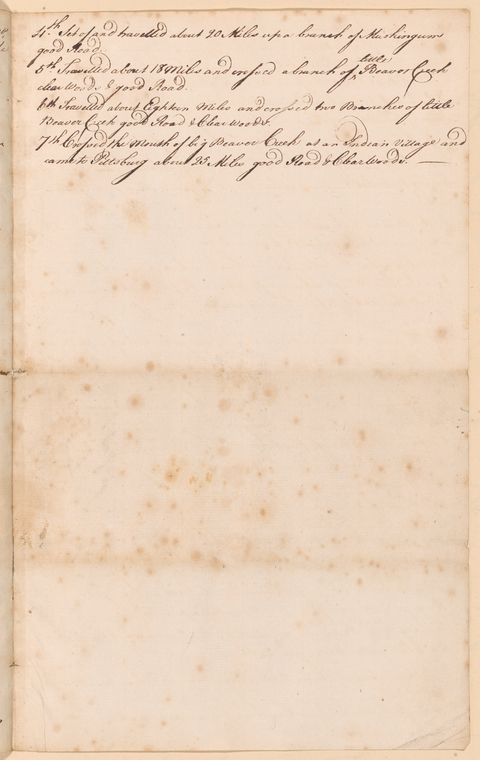 4th. Set of and travelled about 20 Miles up a branch of Muskingum
good Road.
5th. Travelled about 18 Miles and crossed a branch of little Beaver Creek
clear Woods & good Road.
6th Travelled about Eighteen Miles and crossed two Branches of little
Beaver Creek good Road & Clear Woods.
7th Crossed the Mouth of big Beaver Creek at an Indian Village and
came to Pittsburg about 25 Miles good Road & Clear Woods. —